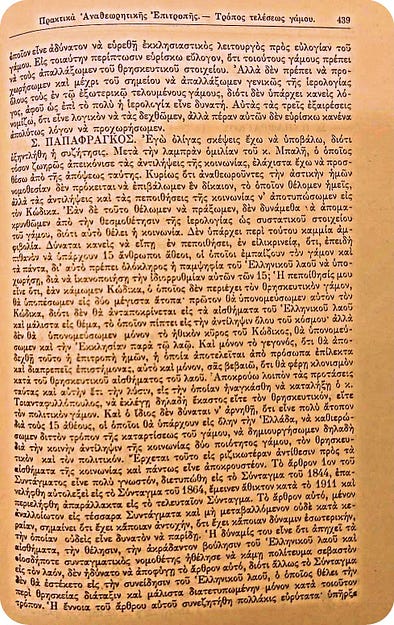 Πρακτικὰ Ἀναθεωρητικῆς Ἐπιτροπῆς. — Τρόπος τελέσεως γάμου. 439
ὁποῖον εἶνε ἀδύνατον νὰ εὑρεθῇ ἐκκλησιαστικὸς λειτουργὸς πρὸς εὐλογίαν τοῦ
γάμου. Εἰς τοιαύτην περίπτωσιν εὑρίσκω εὔλογον, ὅτι τοιούτους γάμους πρέπει
νὰ τοὺς ἀπαλλάξωμεν τοῦ θρησκευτικοῦ στοιχείου. Ἀλλὰ δὲν πρέπει νὰ προ-
χωρήσωμεν καὶ μέχρι τοῦ σημείου νὰ ἀπαλλάξωμεν γενικῶς τῆς ἱερολογίας
ὅλους τοὺς ἐν τῷ ἐξωτερικῷ τελουμένους γάμους, διότι δὲν ὑπάρχει κανεὶς λό-
γος, ἀφοῦ ὡς ἐπὶ τὸ πολὺ ἡ ἱερολογία εἶνε δυνατή. Αὐτὰς τὰς τρεῖς ἐξαιρέσεις
νομίζω, ὅτι εἶνε λογικὸν νὰ τὰς δεχθῶμεν, ἀλλὰ πέραν αὐτῶν δὲν εὑρίσκω κανένα
ἀπολύτως λόγον νὰ προχωρήσωμεν.
Σ. ΠΑΠΑΦΡΑΓΚΟΣ. Ἐγὼ ὀλίγας σκέψεις ἔχω νὰ ὑποβάλω, διότι
ἐξηντλήθη ἡ συζήτησις. Μετὰ τὴν λαμπρὰν ὁμιλίαν τοῦ κ. Μπαλῆ, ὁ ὁποῖος
τόσον ζωηρῶς ἀπεικόνισε τὰς ἀντιλήψεις τῆς κοινωνίας, ἐλάχιστα ἔχω νὰ προσ-
θέσω ἀπὸ τῆς ἀπόψεως ταύτης. Κυρίως ὅτι ἀναθεωροῦντες τὴν ἀστικὴν ἡμῶν
νομοθεσίαν δὲν πρόκειται νὰ ἐπιβάλωμεν ἓν δίκαιον, τὸ ὁποῖον θέλομεν ἡμεῖς,
ἀλλὰ τὰς ἀντιλήψεις καὶ τὰς πεποιθήσεις τῆς κοινωνίας ν' ἀποτυπώσωμεν εἰς
τὸν Κώδικα. Ἐὰν δὲ τοῦτο θέλωμεν νὰ πράξωμεν, δὲν δυνάμεθα νὰ ἀπομα-
κρυνθῶμεν ἀπὸ τὴν θεσμοθέτησιν τῆς ἱερολογίας ὡς συστατικοῦ στοιχείου
τοῦ γάμου, διότι αὐτὸ θέλει ἡ κοινωνία. Δὲν ὑπάρχει περὶ τούτου καμμία ἀμ-
φιβολία. Δύναται κανεὶς νὰ εἴπῃ ἐν πεποιθήσει, ἐν εἰλικρινείᾳ, ὅτι, ἐπειδὴ
πιθανὸν νὰ ὑπάρχουν 15 ἄνθρωποι ἄθεοι, οἱ ὁποῖοι ἐμπαίζουν τὸν γάμον καὶ
τὰ πάντα, δι' αὐτὸ πρέπει ὁλόκληρος ἡ παμψηφία τοῦ Ἑλληνικοῦ λαοῦ νὰ ὑπο-
χωρήσῃ, διὰ νὰ ἱκανοποιήσῃ τὴν ἰδιορρυθμίαν αὐτῶν τῶν 15; Ἡ πεποίθησίς μου
εἶνε ὅτι, ἐὰν κάμωμεν Κώδικα, ὁ ὁποῖος δὲν περιέχει τὸν θρησκευτικὸν γάμον,
θὰ ὑποπέσωμεν εἰς δύο μέγιστα ἄτοπα· πρῶτον θὰ ὑπονομεύσωμεν αὐτὸν τὸν
Κώδικα, διότι δὲν θὰ ἀνταποκρίνεται εἰς τὰ αἰσθήματα τοῦ Ἑλληνικοῦ λαοῦ
καὶ μάλιστα εἰς θέμα, τὸ ὁποῖον πίπτει εἰς τὴν ἀντίληψιν ὅλου τοῦ κόσμου· ἀλλὰ
δὲν θὰ ὑπονομεύσωμεν μόνον τὸ ἠθικὸν κῦρος τοῦ Κώδικος, θὰ ὑπονομεύ-
σωμεν καὶ τὴν Ἐκκλησίαν παρὰ τῷ λαῷ. Καὶ μόνον τὸ γεγονός, ὅτι θὰ ἀπο-
δεχθῇ τοῦτο ἡ ἐπιτροπὴ ἡμῶν, ἡ ὁποία ἀποτελεῖται ἀπὸ πρόσωπα ἐπίλεκτα
καὶ διαπρεπεῖς ἐπιστήμονας, αὐτὸ καὶ μόνον, σᾶς βεβαιῶ, ὅτι θὰ φέρῃ κλονισμὸν
κατὰ τοῦ θρησκευτικοῦ αἰσθήματος τοῦ λαοῦ. Ἀποκρούω λοιπὸν τὰς προτάσεις
ταύτας καὶ αὐτὴν ἔτι τὴν λύσιν, εἰς τὴν ὁποίαν ἠναγκάσθη νὰ καταλήξῃ ὁ κ.
Τριανταφυλλόπουλος, νὰ ἐκλέγῃ δηλαδὴ ἕκαστος εἴτε τὸν θρησκευτικόν, εἴτε
τὸν πολιτικὸν γάμον. Καὶ ὁ ἴδιος δὲν δύναται ν' ἀρνηθῇ, ὅτι εἶνε πολὺ ἄτοπον
διὰ τοὺς 15 ἀθέους, οἱ ὁποῖοι θὰ ὑπάρχουν εἰς ὅλην τὴν Ἑλλάδα, νὰ καθιερώ-
σωμεν διττὸν τρόπον τῆς καταρτίσεως τοῦ γάμου, νὰ δημιουργήσωμεν δηλαδὴ
διὰ τὴν κοινὴν ἀντίληψιν τῆς κοινωνίας δύο ποιότητας γάμου, τὸν θρησκευ-
τικὸν καὶ τὸν πολιτικόν. Ἔρχεται τοῦτο εἰς ριζικωτέραν ἀντίθεσιν πρὸς τὰ
αἰσθήματα τῆς κοινωνίας καὶ πάντως εἶνε ἀποκρουστέον. Τὸ ἄρθρον 1ον τοῦ
Συντάγματος εἶνε πολὺ γνωστόν, διετυπώθη εἰς τὸ Σύνταγμα τοῦ 1844, ἐπα-
νελήφθη αὐτολεξεὶ εἰς τὸ Σύνταγμα τοῦ 1864, ἔμεινεν ἄθικτον κατὰ τὸ 1911 καὶ
περιελήφθη ἀπαράλλακτα εἰς τὸ τελευταῖον Σύνταγμα. Τὸ ἄρθρον αὐτό, μένον
ἀναλλοίωτον εἰς τέσσαρα Συντάγματα καὶ μὴ μεταβαλλόμενον οὐδὲ κατὰ κε-
ραίαν, σημαίνει ὅτι ἔχει κάποιαν ἀντοχήν, ὅτι ἔχει κάποιαν δύναμιν ἐσωτερικήν,
τὴν ὁποίαν οὐδεὶς εἶνε δυνατὸν νὰ παρίδῃ. Ἡ δύναμίς του εἶνε ὅτι ἀπηχεῖ τὰ
αἰσθήματα, τὴν θέλησιν, τὴν ἀκράδαντον βούλησιν τοῦ Ἑλληνικοῦ λαοῦ καὶ
οἱοσδήποτε συνταγματικὸς νομοθέτης ἠθέλησε νὰ κάμῃ πολίτευμα σεβαστὸν
εἰς τὸν λαόν, δὲν ἠδύνατο νὰ ἀποφύγῃ τὸ ἄρθρον αὐτό, διότι ἄλλως τὸ Σύνταγμα
δὲν θὰ ἐστέκετο εἰς τὴν συνείδησιν τοῦ Ἑλληνικοῦ λαοῦ, ὁ ὁποῖος θέλει τὴν
περὶ θρησκείας διάταξιν καὶ μάλιστα διατετυπωμένην μόνον κατὰ τοιοῦτον
τρόπον. Ἡ ἔννοια τοῦ ἄρθρου αὐτοῦ συνεζητήθη πολλάκις εὐρύτατα· ὑπῆρξε